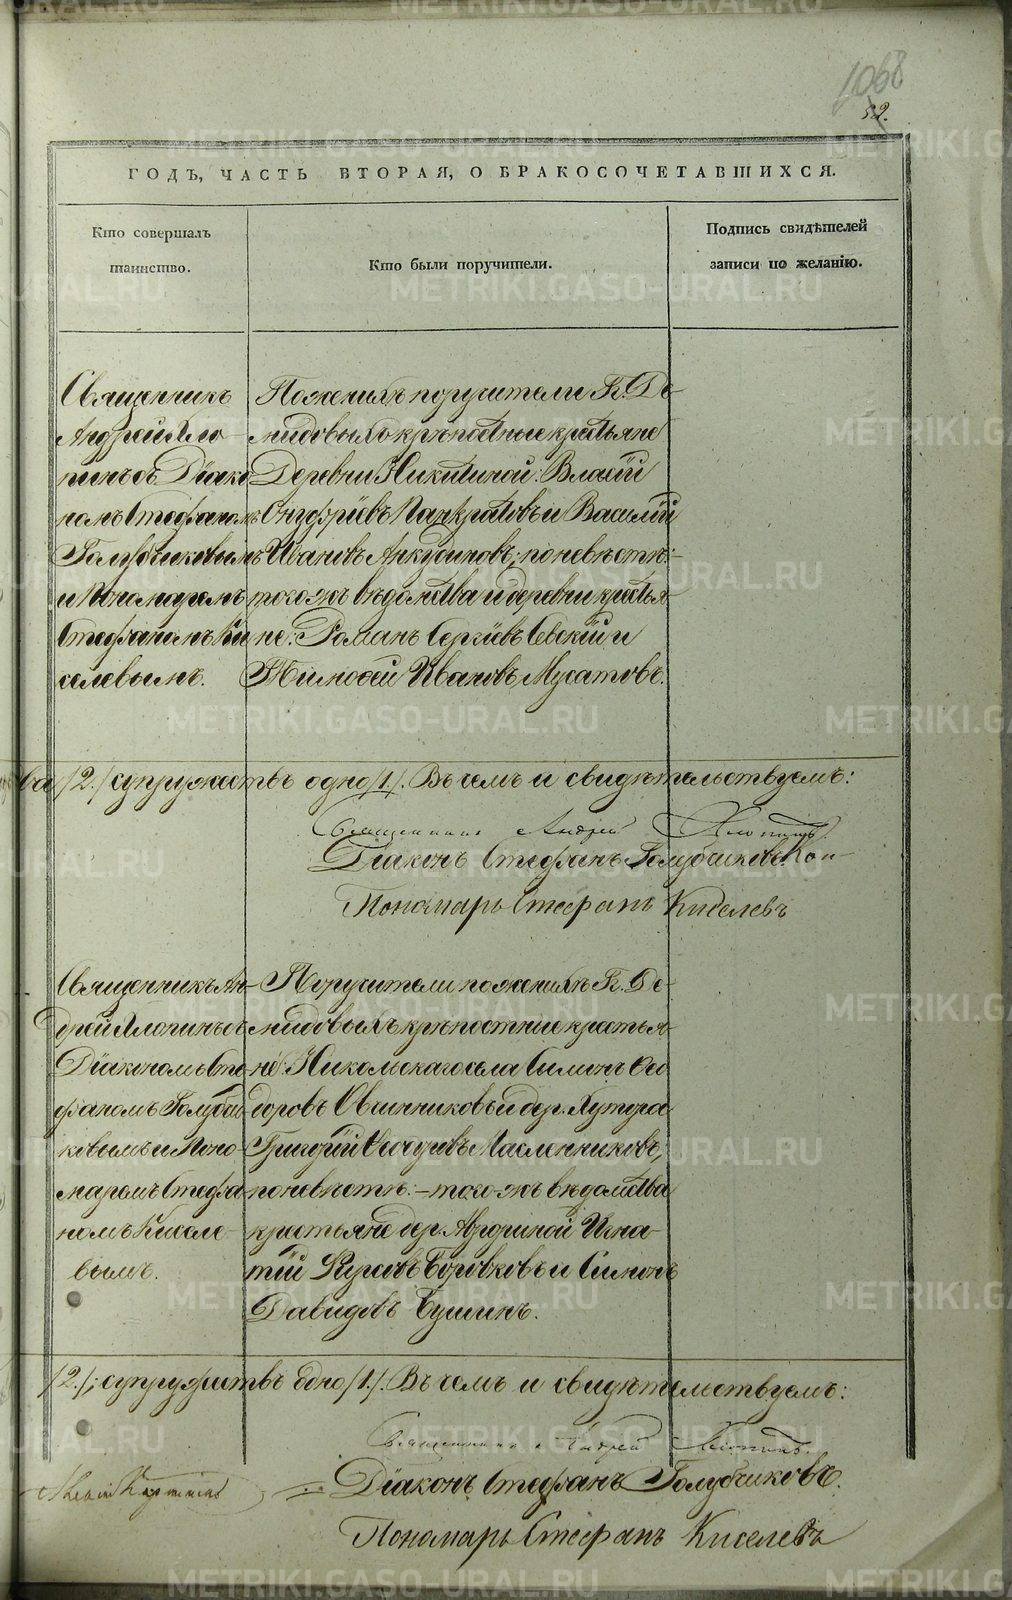 1068
52.
ГОДЪ, ЧАСТЬ ВТОРАЯ, О БРАКОСОЧЕТАВШИХСЯ.
Кто совершалъ
таинство.
Кто были поручители.
Подпись свидѣтелей
записи по желанію.
Священникъ
Андрей Хло-
пинъ съ Діако
номъ Стефаномъ
Голубчиковымъ
и Пономаремъ
Стефаномъ Ки
селевымъ.
По женихѣ поручители Гг. Де
мидовыхъ крѣпостные крестьяне
Деревни Никитиной: Власій
Онуфріевъ Панкратовъ и Василій
Ивановъ Анкудиновъ; по невѣстѣ:-
того жъ вѣдомства и деревни крестья
не: Романъ Сергіевъ Севскій и
Тимофей Ивановъ Мусатовъ.
ва /2./ супружествъ одно /1./. Въ чемъ и свидѣтельствуемъ:
Священникъ Андрей Хлопинъ
Діаконъ Стефанъ Голубчиковъ
Пономарь Стефанъ Киселевъ
Священникъ Ан-
дрей Хлопинъ съ
Діакономъ Сте
фаномъ Голубчи
ковымъ и Поно-
маремъ Стефа
номъ Киселе-
вымъ.
Поручители по женихѣ Гг. Де-
мидовыхъ крѣпостные крестья-
не: Никольскаго села Симонъ Ѳео
доровъ Овчинниковъ и дер.
Григорій Масленниковъ,
по невѣстѣ:- того жъ вѣдомства
крестьяне дер. Игна-
тій Боровковъ и Симонъ
Давидовъ
/2./; супружествъ одно /1./. Въ чемъ и свидѣтельствуемъ:
Священникъ Андрей Хлопинъ.
Діаконъ Стефанъ Голубчиковъ.
Пономарь Стефанъ Киселевъ
METRIKI.GASO-URAL.RU